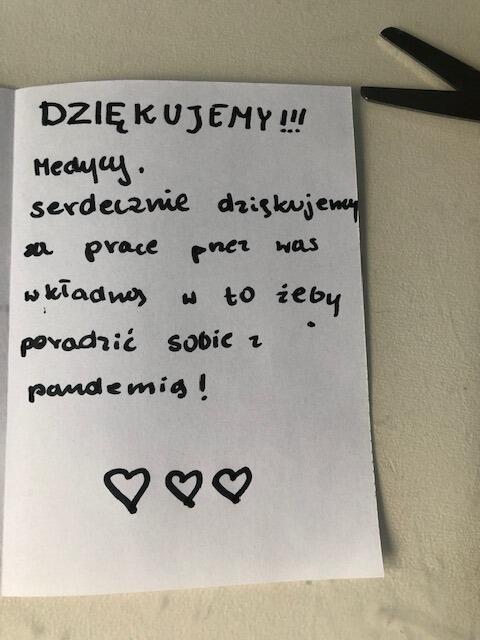 DZIĘKUJEMY!!!
Medycy.
serdecznie dziękujemy
za pracę przez was
wkładną w to żeby
poradzić sobie z
pandemią!